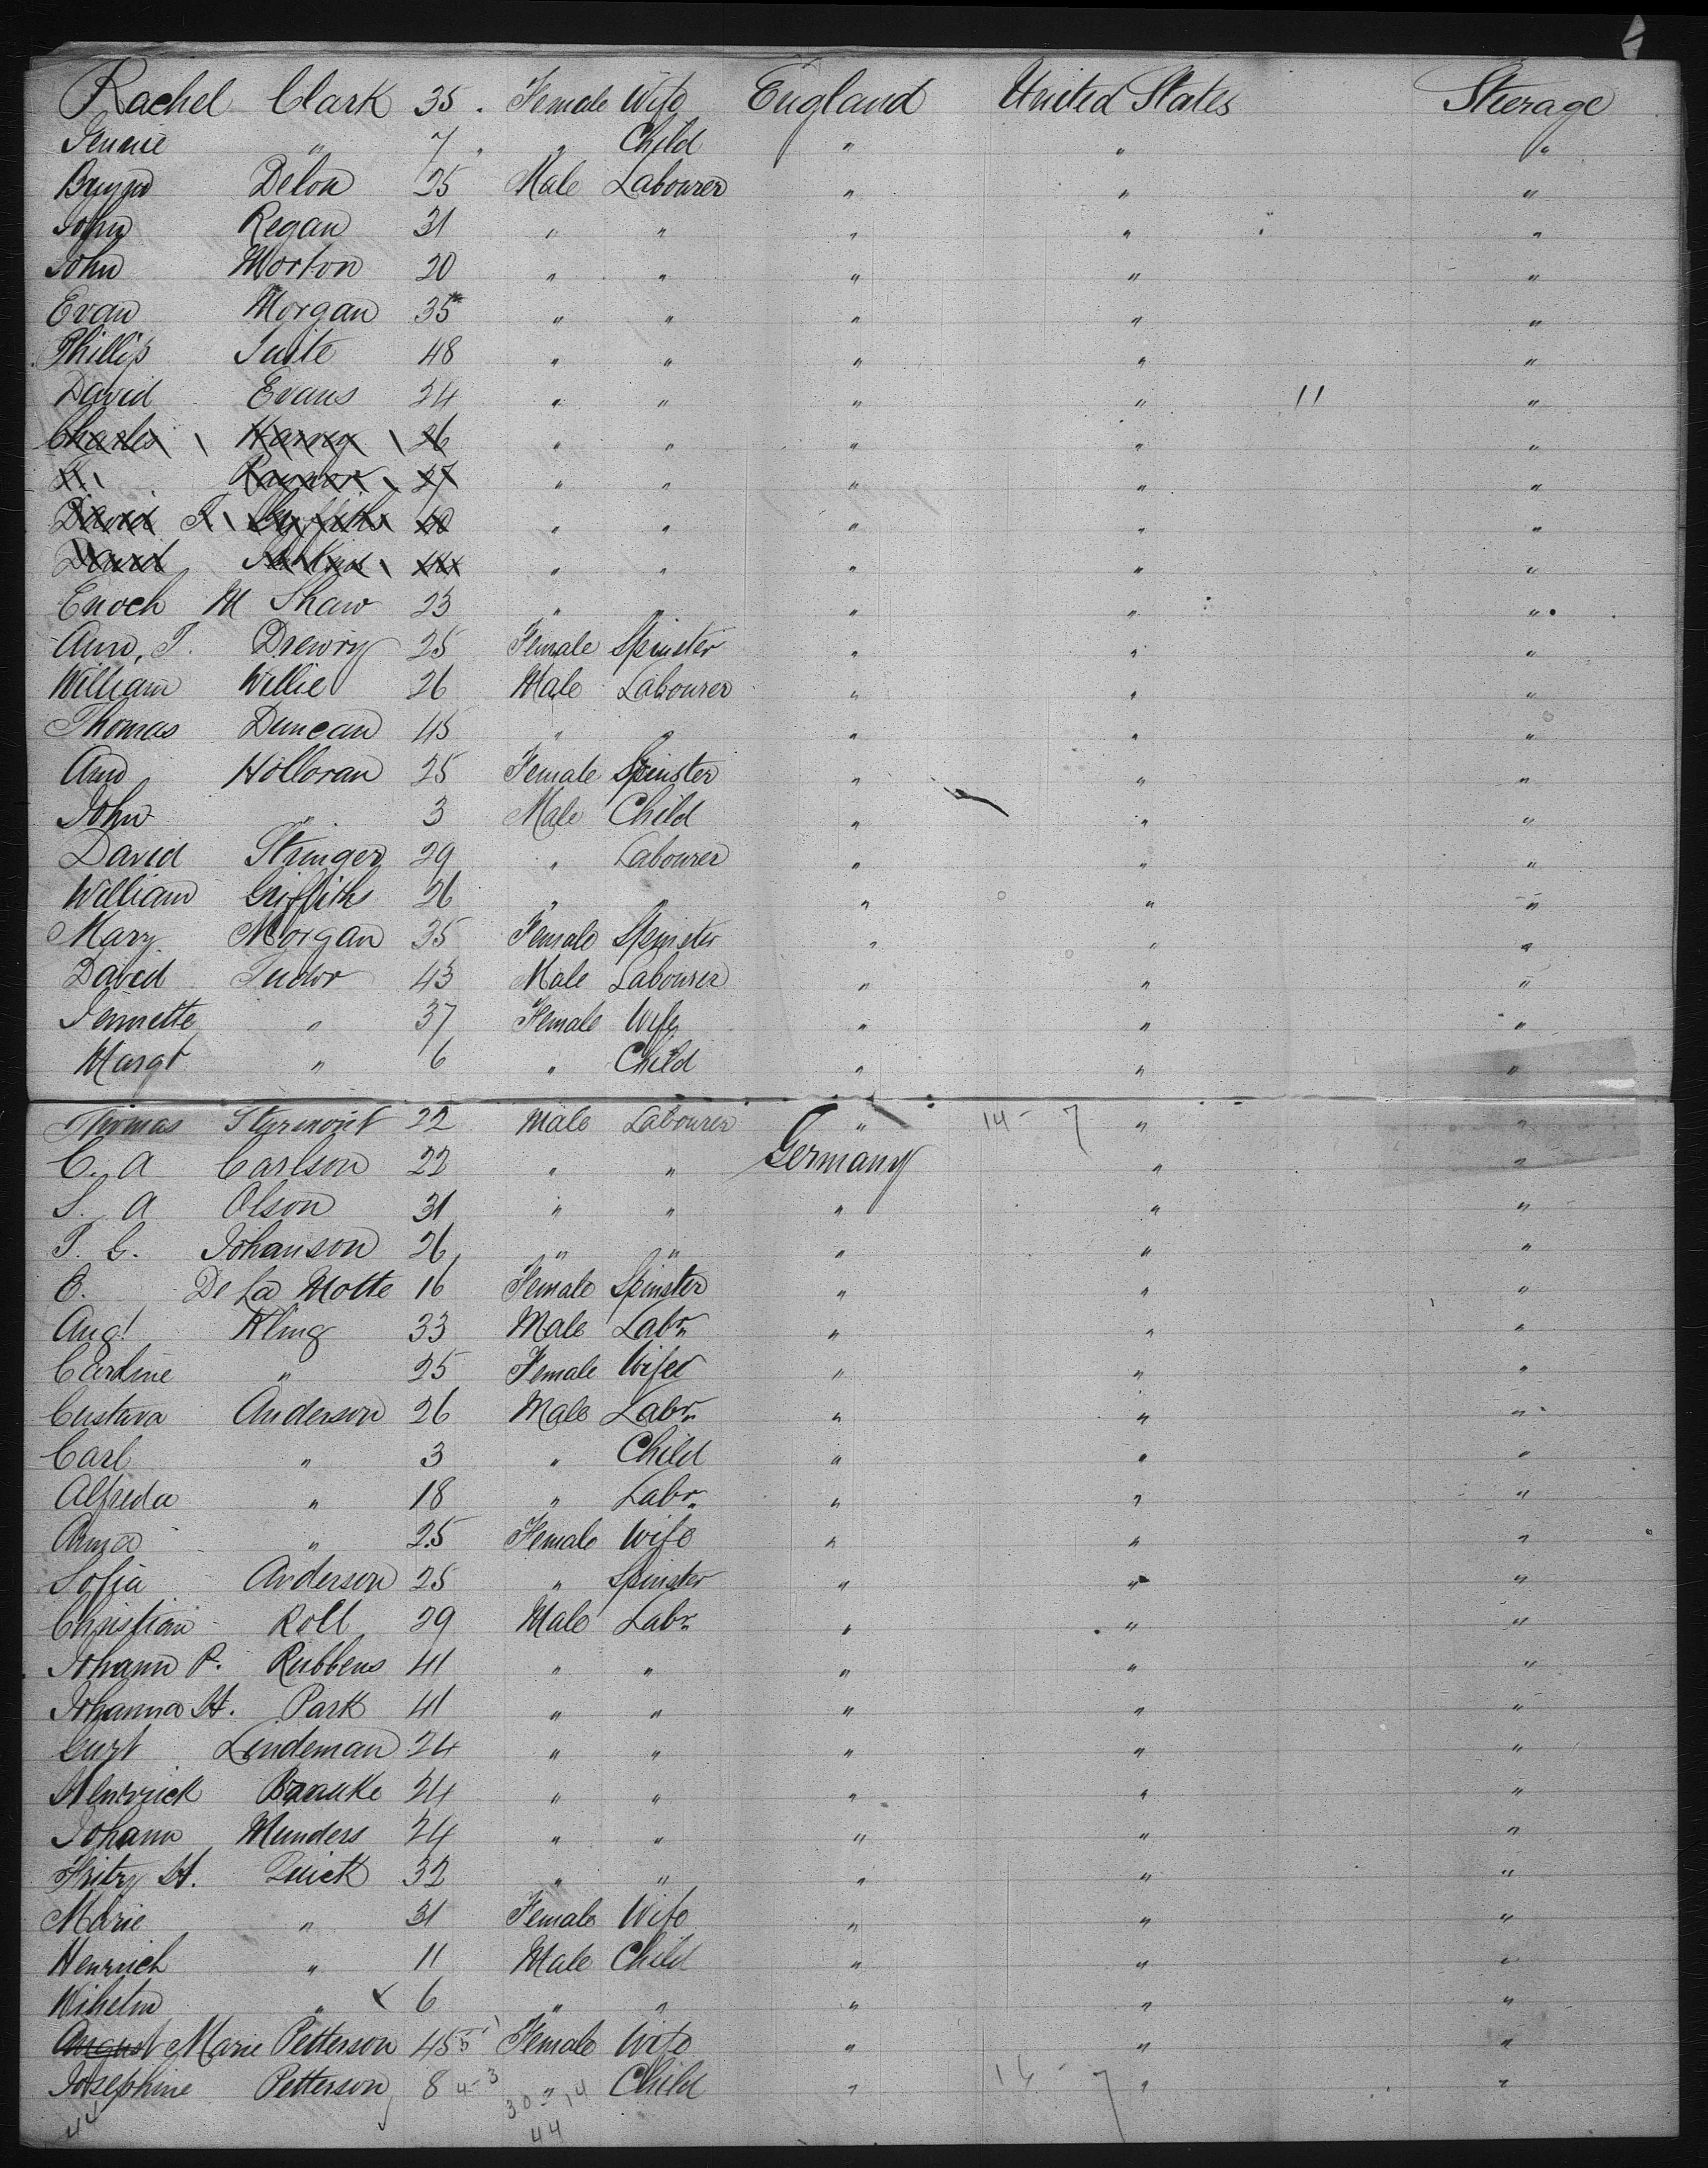 Rachel Clark 35 . Female Wife England United States Steerage
Jennie " 7 " " Child " " "
Delon 25 Male Labourer " " "
John Regan 31 " " " " "
John Morton 20 " " " " "
Evan Morgan 35 " " " " "
Phillip 48 " " " " "
David Evans 24 " " " " 11 "
Charles 26 " " " " "
27 " " " " "
David T. Griffiths 40 " " " " "
David " " " " "
Enoch M Shaw 23 " " " " "
Ann, T. Drewry 25 Female Spinster " " "
William Willie 26 Male Labourer " " "
Thomas Duncan 45 " " " " "
Ann Holloran 25 Female Spinster " " "
John " 3 Male Child " " "
David Stringer 29 " Labourer " " "
William Griffiths 26 " " " " "
Mary Morgan 35 Female Spinster " " "
David Tudor 43 Male Labourer " " "
Jennette " 37 Female Wife " " "
Margt " 6 " Child " " "
Thomas 22 Male Labourer " 14 - 7 " "
C. A Carlson 22 " " Germany " "
S. A Olson 31 " " " " "
T. G. Johanson 26 " " " " "
De La Motte 16 Female Spinster " " "
Aug! Kling 33 Male Labr " " "
Cardine " 25 Female Wife " " "
Gustava Anderson 26 Male Labr " " "
Carl " 3 " Child " " "
Alfreda " 18 " Labr " " "
Anna " 25 Female Wife " " "
Sofia Anderson 25 " Spinster " " "
Christian Roll 29 Male Labr " " "
Johann P. Rubbens 41 " " " " "
Johanna H. Park 41 " " " " "
Curt Lindeman 24 " " " " "
24 " " " " "
Johann Munders 24 " " " " "
Fritz H. Quick 32 " " " " "
Marie " 31 Female Wife " " "
Henrich " 11 Male Child " " "
Wihelm " x 6 " " " " "
August Marie Petterson 45 Female Wife " " "
Josephine Petterson 8 4-3 " Child " 16 - 7 " "
44 30 - 14
44